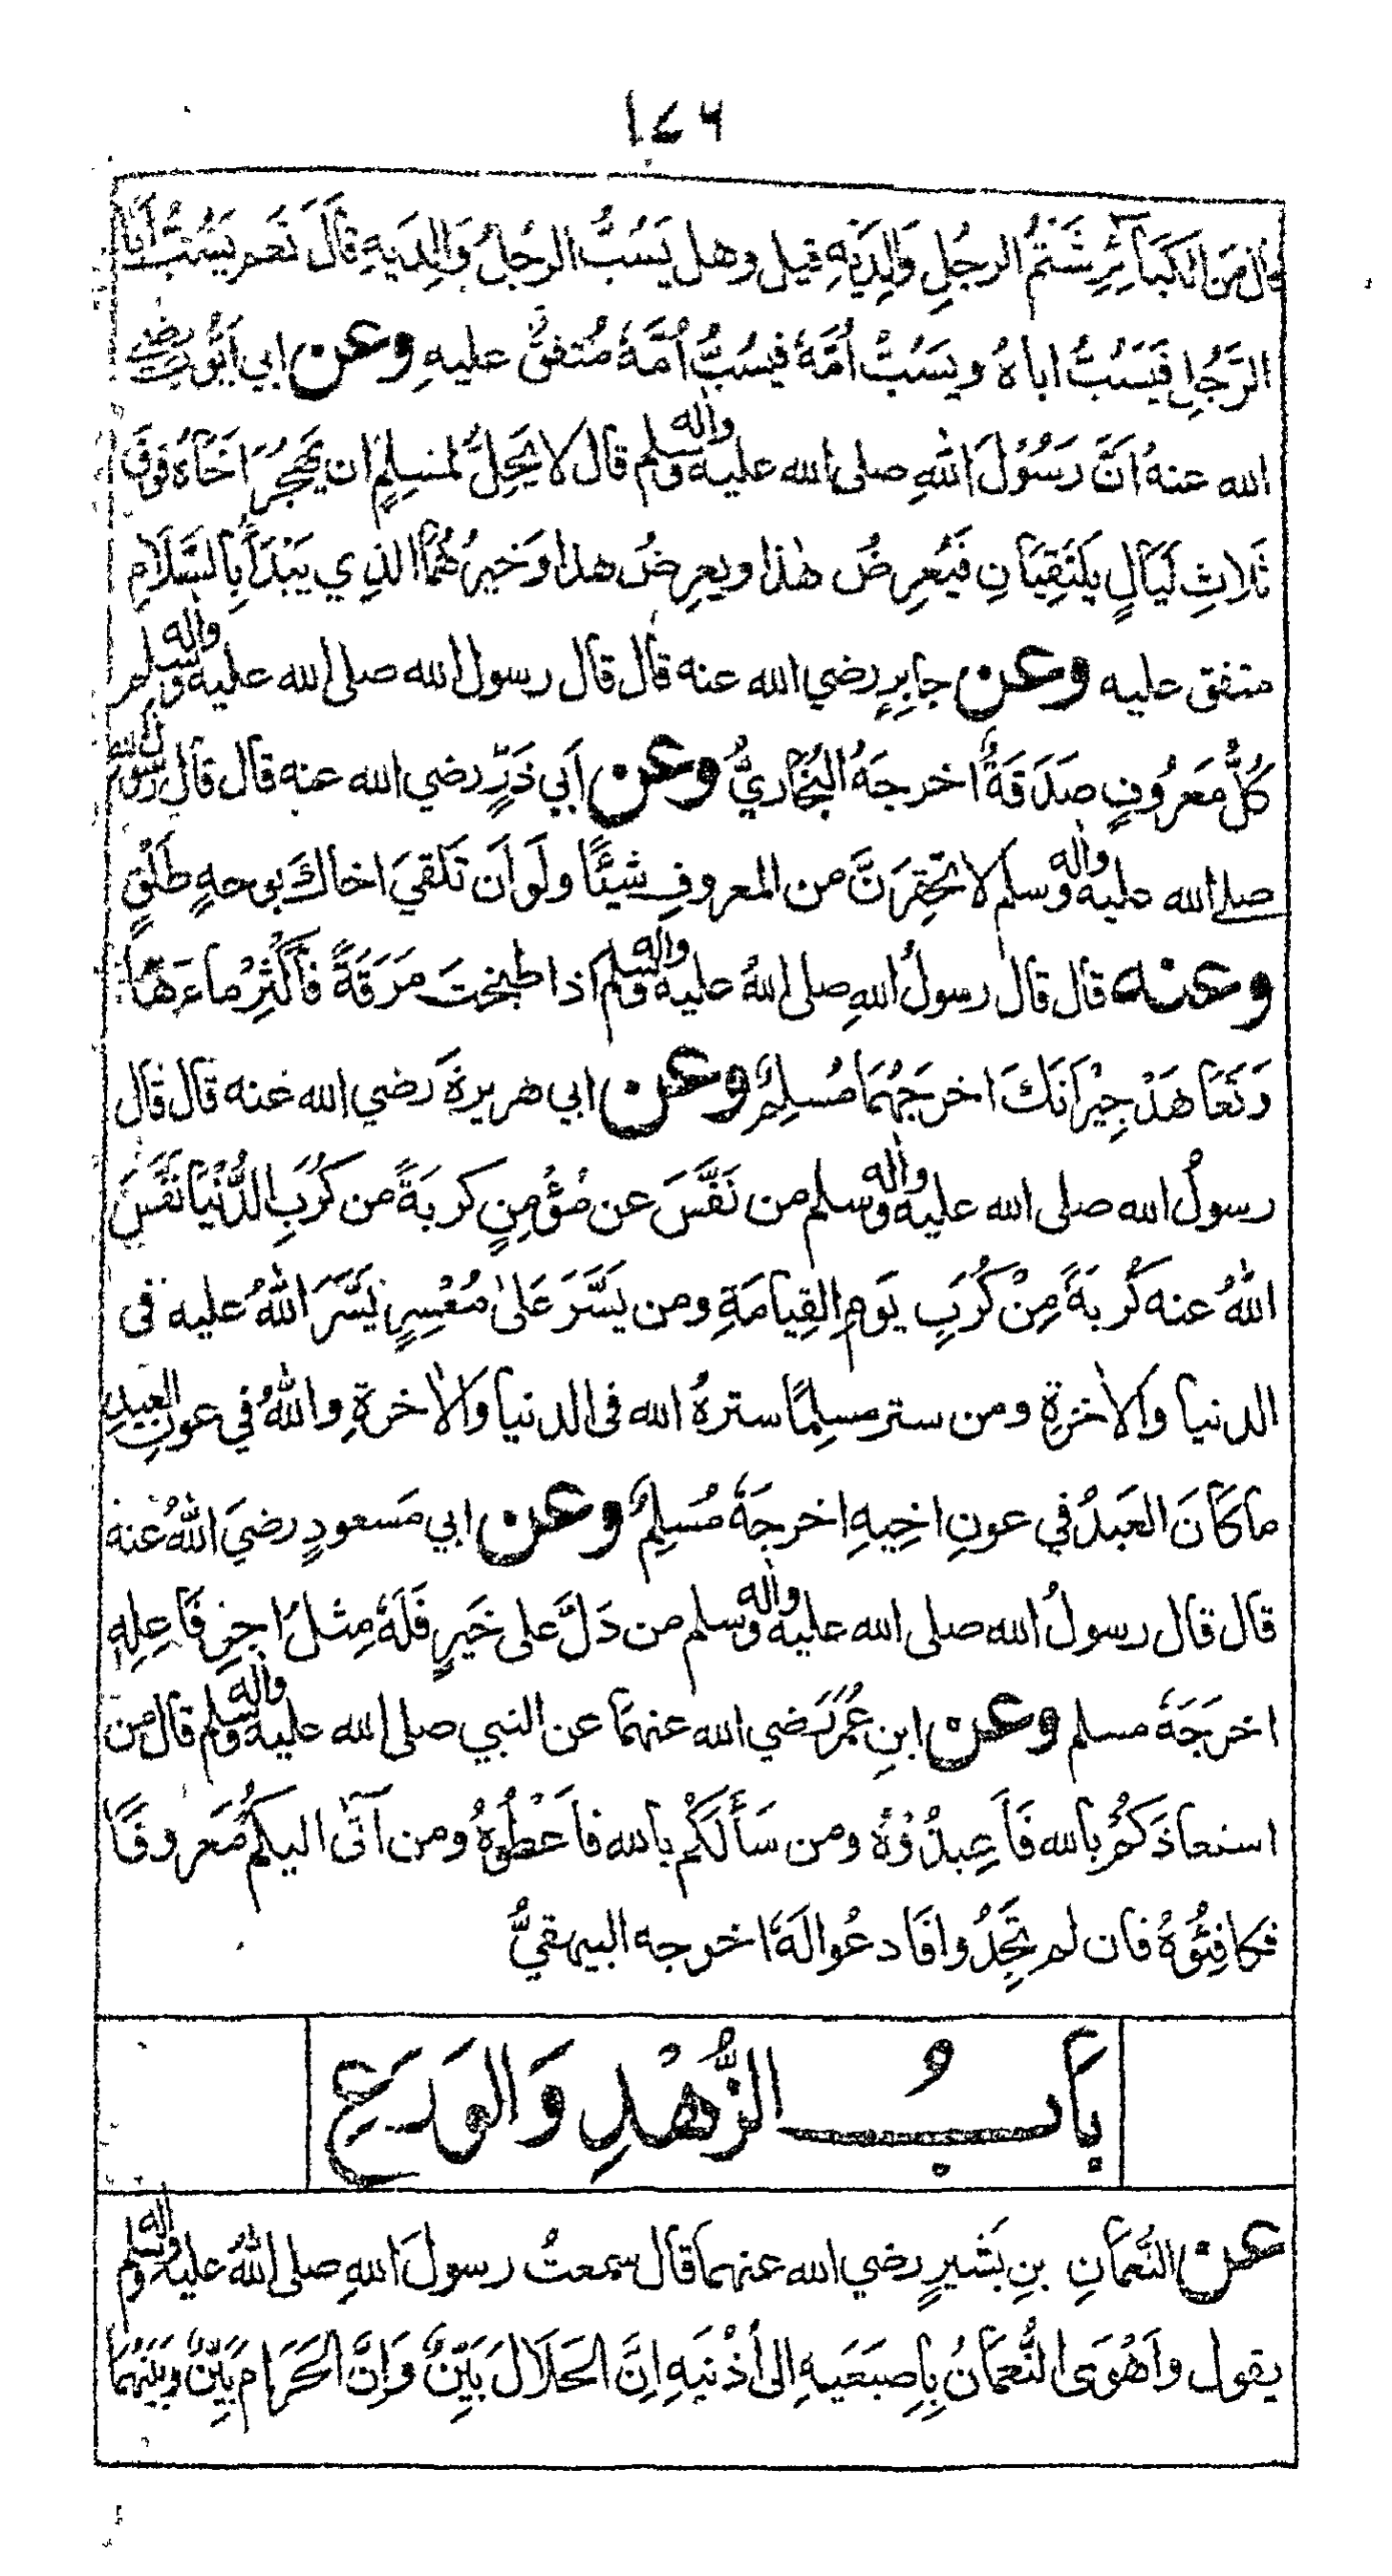 ١٤٦
قال من الكبائر شَتمُ الرجُلِ وَالِدَيْهِ قيل وهل يَسُبُّ الرجُلُ وَالِدَيهِ قالَ نَعم يَسُبُّ أبَا
الرَّجُلِ فَيَسُبُّ اباهُ ويَسُبُّ اُمَّهُ فيسُبُّ اُمَّهُ مُتفقٌ عليهِ وعن ابي اَيُّوبَ رضي
الله عنهُ اَنَّ رَسُوْلَ اللهِ صلى الله عليه واٰله وسلم قال لا يَحِلُّ لمُسلِمٍ ان يَهجُرَ اَخَاهُ فوقَ
ثَلاثِ لَيَالٍ يَلتَقِيَانِ فَيُعرِضُ هٰذا ويعرِضُ هذا وَخيرُهُمَا الذِي يَبْدَأُ بِالسَّلَامِ
متفق عليه وعن جابِرٍ رضي الله عنه قال قال رسول الله صلى الله عليه واٰله وسلم
كُلُّ مَعرُوفٍ صَدَقَةٌ اخرجَهُ البُخَاريُّ وعن اَبي ذَرٍّ رضي الله عنه قال قال رسول الله
صلى الله عليه واٰله وسلم لا تَحقِرَنَّ من المعروفِ شيئًا ولَو اَن تَلقيَ اخاكَ بوجهٍ طَلْقٍ
وعنه قال قال رسولُ اللهِ صلى اللهُ عليه واٰله وسلم اذا طبختَ مَرَقَةً فأَكثِرْ ماءَهَا
وَتَعَاهَدْ جِيْرَانَكَ اخرجَهُمَا مُسلِمٌ وعن ابي هريرةَ رَضي الله عنه قال قال
رسولُ الله صلى الله عليه واٰله وسلم من نَفَّسَ عن مُؤمِنٍ كربَةً من كُرَبِ الدُّنْيَا نَفَّسَ
اللهُ عنه كُربَةً مِنْ كُرَبِ يَومِ القِيامَةِ ومن يَسَّرَ عَلىٰ مُعْسِرٍ يَسَّرَ اللهُ عليه فى
الدنيا والاٰخرةِ ومن ستر مسلِمًا سترهُ الله فى الدنيا والاٰخرةِ واللهُ في عونِ العبدِ
ما كَانَ العَبدُ في عونِ اخِيهِ اخرجَهُ مُسلِمٌ وعن ابي مَسعودٍ رضيَ اللهُ عنه
قال قال رسولُ الله صلى الله عليه واٰله وسلم من دَلَّ على خَيرٍ فَلَهُ مِثلُ اَجرِ فَاعِلِهِ
اخرَجَهُ مسلم وعن ابنِ عُمَرَ رَضي الله عنهمَا عن النبي صلى الله عليه واٰله وسلم قال من
استعاذَكُم بالله فَأَعِيذُوْهُ ومن سَأَلَكُم بالله فاَعْطُوهُ ومن آتَى اليكُم مَعروفًا
فكافِئُوهُ فان لم تَجِدُوا فَادعُوا لَهُ اخرجه البيهقيُّ
بَابُ الزُّهْدِ وَالوَرَعِ
عن النُّعمَانِ بنِ بَشيرٍ رضي الله عنهمَا قال سمعتُ رسولَ اللهِ صلى اللهُ عليه واٰله وسلم
يقول واَهْوَى النُّعمَانُ بِاِصبَعَيهِ الى أُذْنَيهِ اِنَّ الحَلَالَ بَيِّنٌ وَاِنَّ الحَرَامَ بَيِّنٌ وبَينَهُمَا